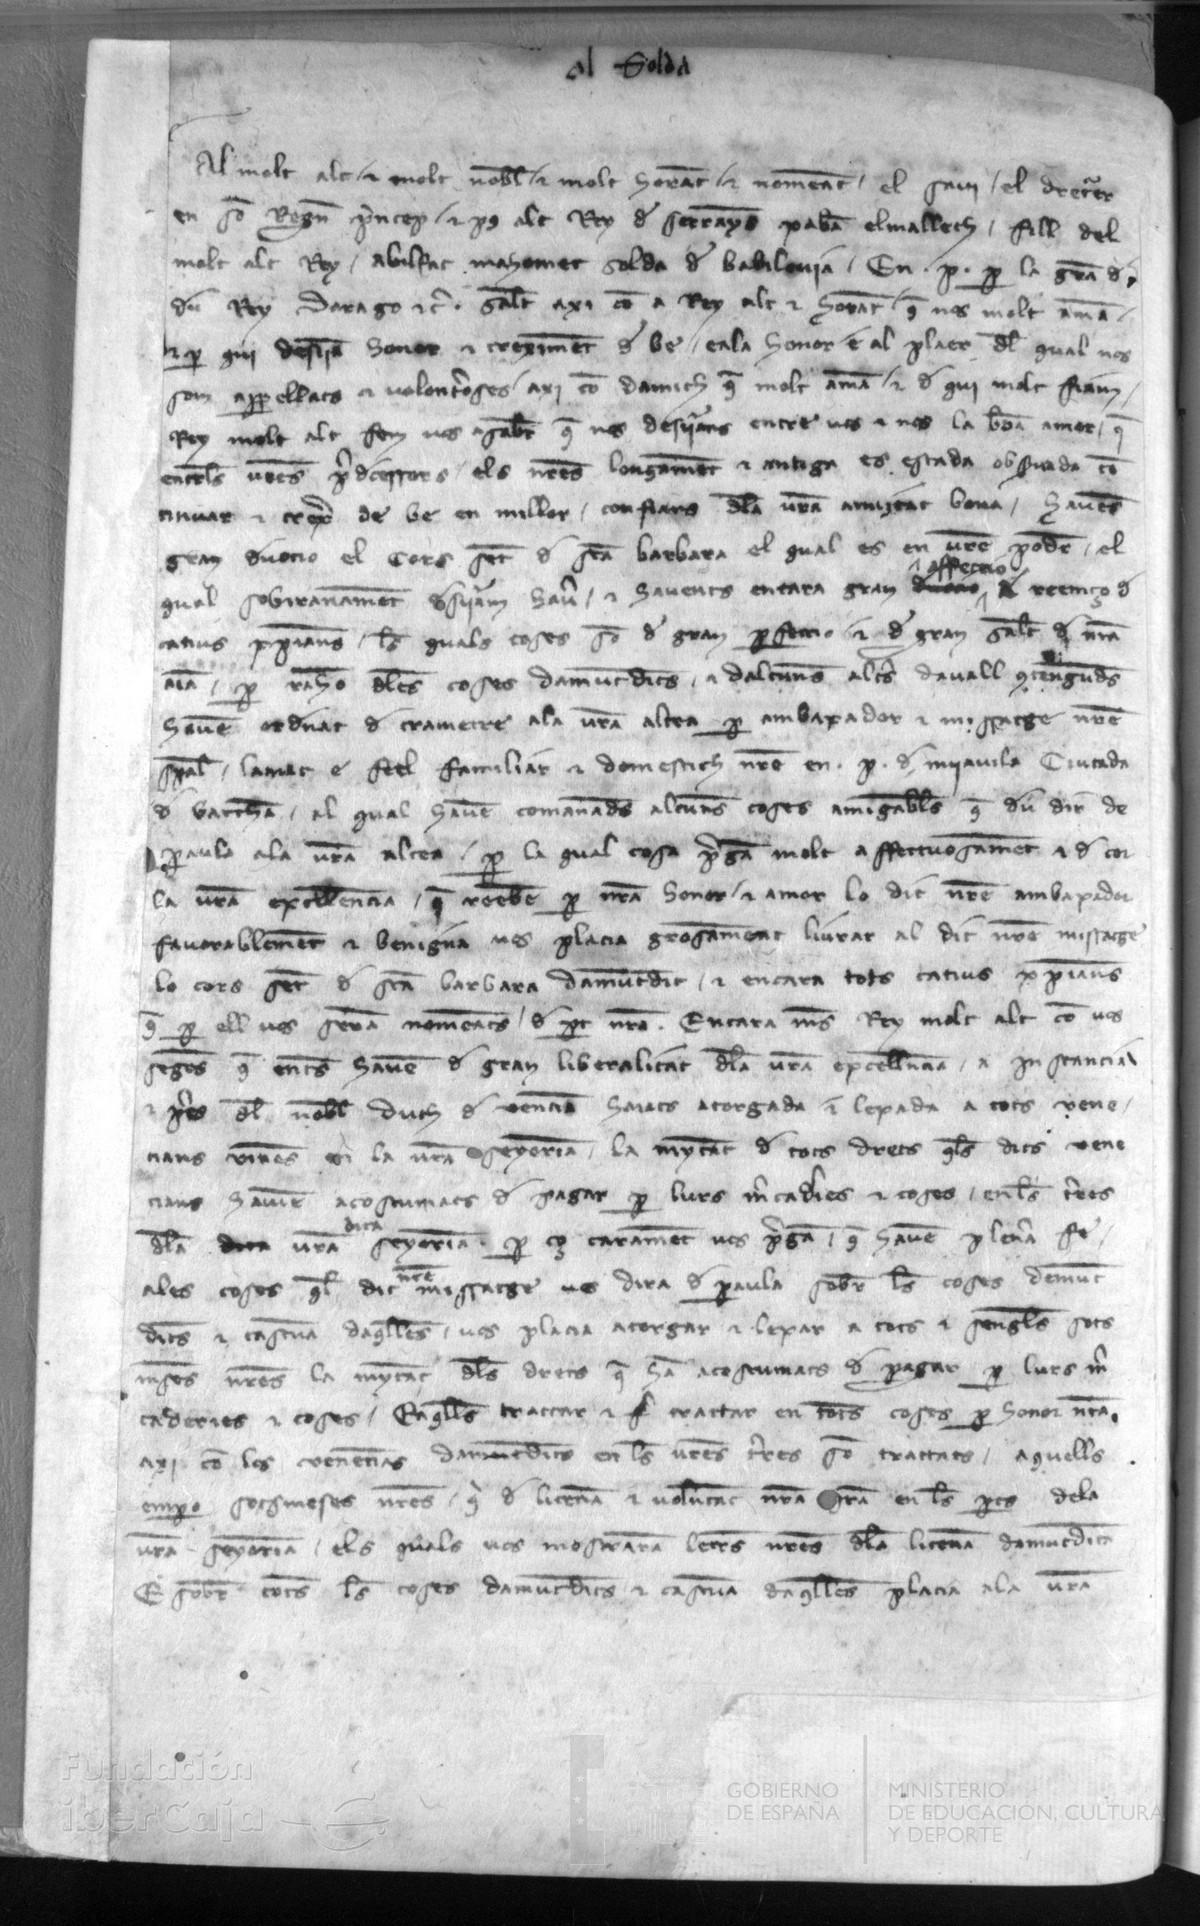 al Solda
Al molt alt / ⁊ molt nobl̄ / ⁊ molt honrāt / ⁊ nomenāt / el savi / el dreturer
en sō Regn̄ p̄ncep / ⁊ alt Rey d̄ serrayns elmallech / fill del
molt alt Rey / mahomet solda d̄ babilonia / En . p . p la grā d̄
dū Rey Darago ⁊c̄ . salt̄ axi cō a Rey alt ⁊ honrāt / q̄ nos molt amā /
⁊ p qui desijā honor ⁊ creximēt d̄ be / e ala honor e al plaer dl̄ qual nos
som appellats ⁊ volonteroses / axi cō damich q̄ molt amā / ⁊ d̄ qui molt fiam /
Rey molt alt fem vos asabr̄ q̄ nos desijans entre vos ⁊ nos la bōa amor / q̄
entrls̄ vrēs p̄dcessors / els nrēs longamēt ⁊ antiga es estada obsuada cō
tinuar ⁊ crexr̄ de be en millor / confians dl̄a vrā amistat bona / havēs
gran dvocio el cors sēt d̄ stā barbara el qual es en vrē podr̄ / el
qual sobiranamēt dsijam hav̄ / ⁊ havents encara gran affeccio d̄ reemço d̄
catius xp̄ians / ls̄ quals coses sō d̄ gran pfeccio ⁊ d̄ gran salt̄ d̄ nrā
aīa / p raho dl̄es coses damūtdits / ⁊ dalcunēs altr̄s davall 9tenguds
havē ordnat d̄ trametre ala vrā altea p ambaxador ⁊ missatge nrē
spāl / lamat e feel familiar ⁊ domestich nrē en . p . d̄ mijavila Ciutada
d̄ barchā / al qual havē comanads alcuns coses amigabls̄ q̄ dū dir̄ de
paula ala vrā altea / p la qual cosa p̄gā molt affectuosamēt ⁊ d̄ cor
la vrā excellencia / q̄ reebē p nrā honor / ⁊ amor lo dit nrē ambaxador
favorablemēt ⁊ benigna vos placia graosamēt liurar al dit nrē missatge
lo cors sēt d̄ stā barbara damūtdit / ⁊ encara tots catius xp̄ians
q̄ p ell vos serā nomenats / d̄ pt nrā . Encara mēs Rey molt alt cō vos
segōs q̄ entēs havē d̄ gran liberalitat dl̄a vrā excellncia / a instancia
⁊ p̄es dl̄ nobl̄ Duch d̄ vencia haiats atorgada ⁊ lexada a tots vene /
cians la vrā seyoria / la mytat d̄ tots drets qls̄ dits vene
cians havē acostumats d̄ pagar p lurs m̄cadies ⁊ coses / en ls̄ tr̄res
dl̄a vrā dita seyoria . p ço caramēt vos p̄gā / q̄ havē plena fe /
ales coses ql̄ dit nrē missatge vos dira d̄ paula sobr̄ ls̄ coses demūt
dits ⁊ cascuā daqllēs / vos placia atorgar ⁊ lexar a tots ⁊ sengls̄ sots
mses nrēs la mytat dl̄s drets q̄ hā acostumats d̄ pagar p lurs m̄
caderies ⁊ coses / Eaqlls̄ tractar ⁊ f tractar en tots coses p honor nrā
axi cō los venecians damūtdits en ls̄ vrēs tr̄res sō tractats / aquells
empo sotsmeses nrēs / q̄ d̄ licecia ⁊ voluntat nrā en ls̄ pts dela
vrā seyoria / els quals vos mostrarā letrs nrēs dl̄a licecia damūtdita
E sobr̄ tots ls̄ coses damūtdits ⁊ cascuā daqllēs placia ala vrā
Fundación
iberCaja
GOBIERNO
DE ESPAÑA
MINISTERIO
DE EDUCACIÓN, CULTURA
Y DEPORTE